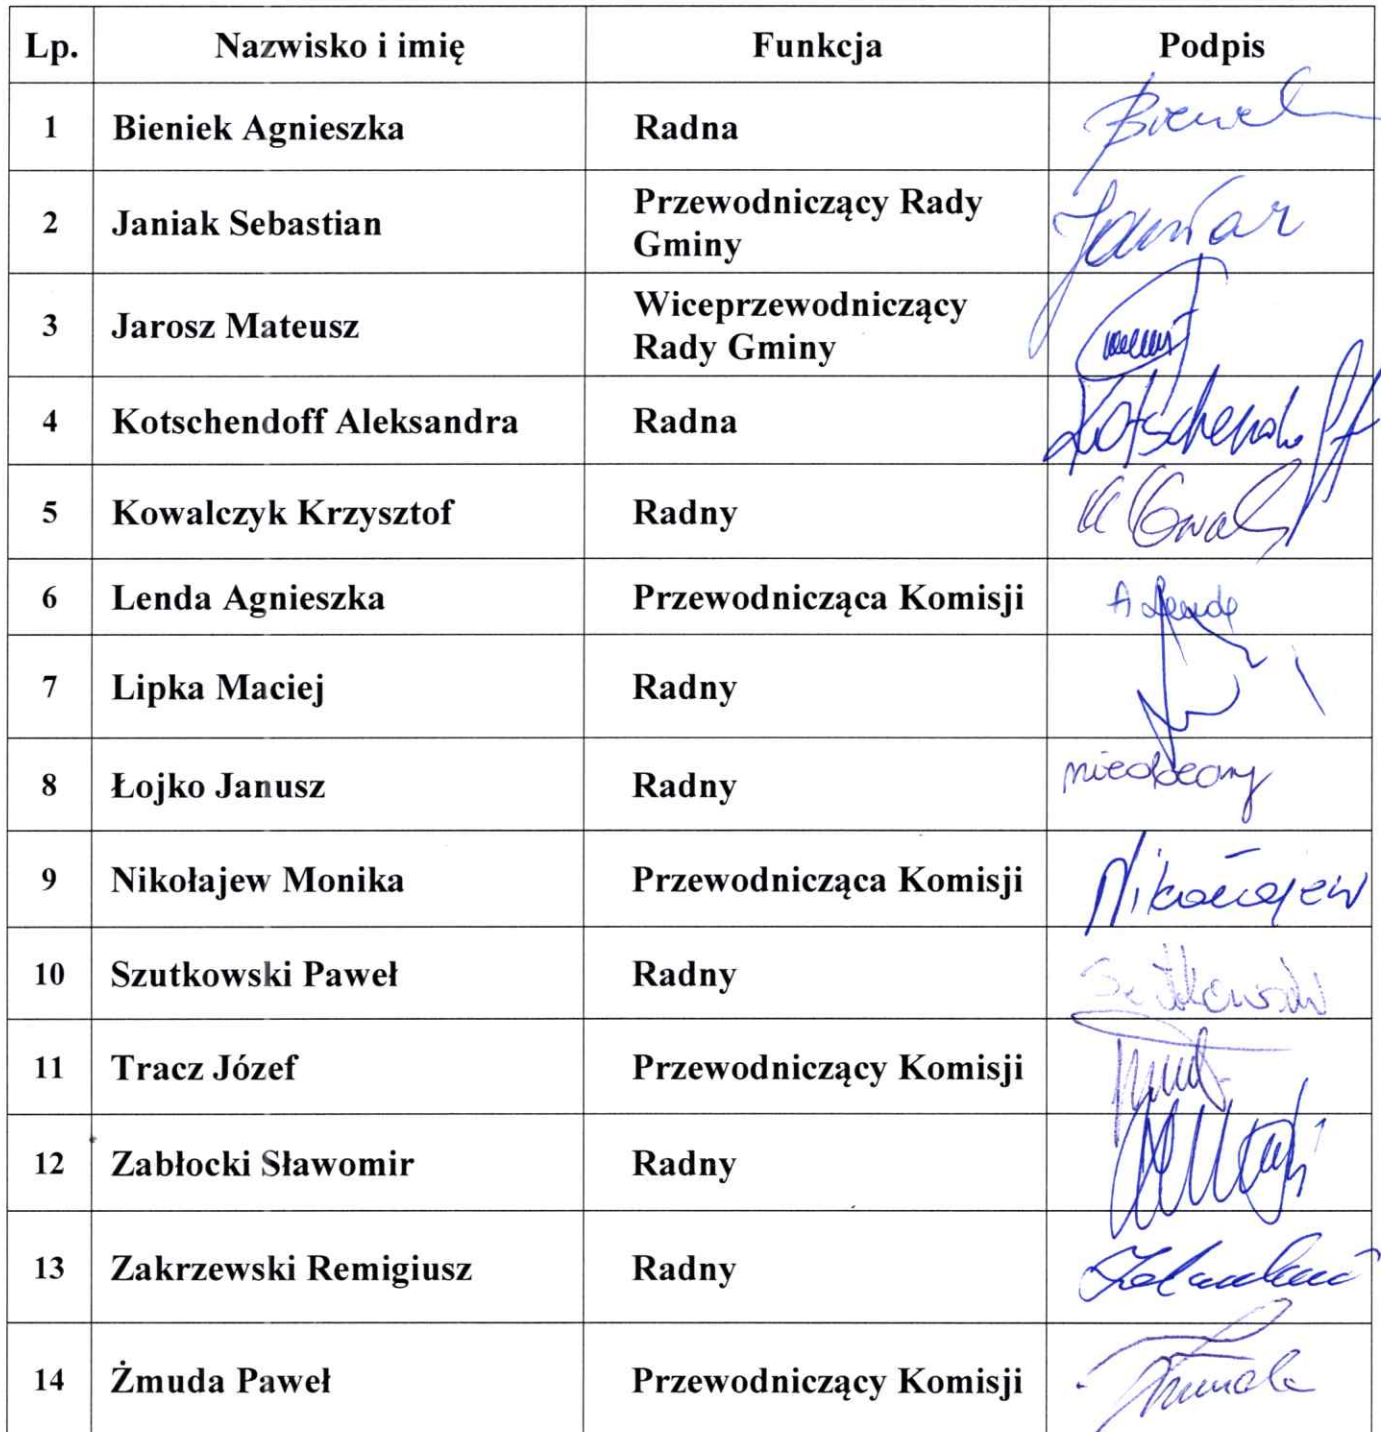 Lp. Nazwisko i imię Funkcja Podpis
1 Bieniek Agnieszka Radna
2 Janiak Sebastian Przewodniczący Rady
Gminy
3 Jarosz Mateusz Wiceprzewodniczący
Rady Gminy
4 Kotschendoff Aleksandra Radna Kotschendoff
5 Kowalczyk Krzysztof Radny
6 Lenda Agnieszka Przewodnicząca Komisji A Lenda
7 Lipka Maciej Radny
8 Łojko Janusz Radny nieobecny
9 Nikołajew Monika Przewodnicząca Komisji Nikołajew
10 Szutkowski Paweł Radny
11 Tracz Józef Przewodniczący Komisji
12 Zabłocki Sławomir Radny
13 Zakrzewski Remigiusz Radny
14 Żmuda Paweł Przewodniczący Komisji